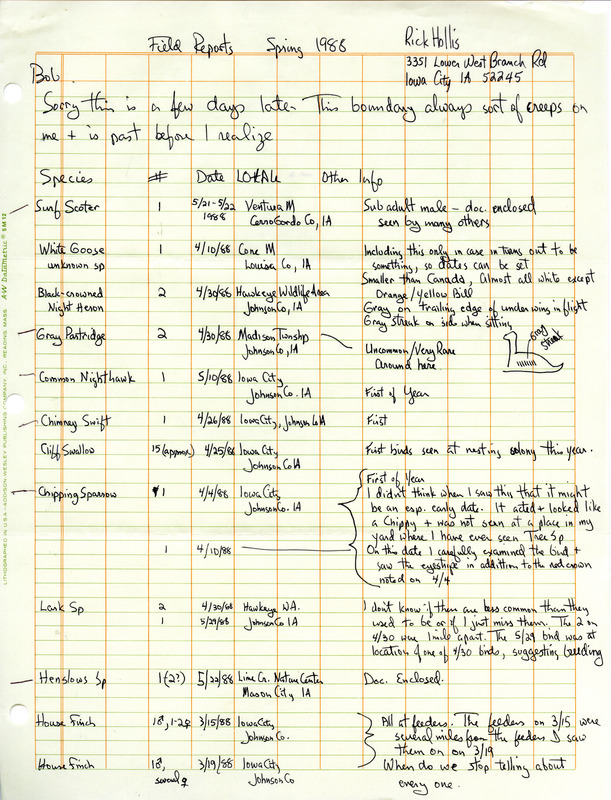 Field Reports Spring 1988
Rick Hollis
3351 Lower West Branch Rd
Iowa City IA 52245
Bob
Sorry this is a few days late. This boundary always sort of creeps on
me + is past before I realize
Species # Date LOCAle Other Info
Surf Scoter 1 5/21-5/22 1988 Ventura M Sub adult male - doc. enclosed
Cerro Gordo Co, IA seen by many others
White Goose 1 4/10/88 Cone M Including this only in case in turns out to be
unknown sp Louisa Co, IA something, so dates can be set
Smaller than Canada, almost all white except
Black-crowned 2 4/30/88 Hawkeye Wildlife Area Orange/Yellow Bill
Night Heron Johnson Co, IA Gray on trailing edge of under wing in flight
Gray Streak on side when sitting
Gray Streak
Gray Partridge 2 4/30/88 Madison Twnshp
Johnson Co, IA Uncommon/Very Rare
around here
Common Nighthawk 1 5/10/88 Iowa City
Johnson Co. IA First of Year
Chimney Swift 1 4/26/88 Iowa City, Johnson Co IA First
Cliff Swallow 15 (approx) 4/25/88 Iowa City First birds seen at nesting colony this year.
Johnson Co IA
First of Year
Chipping Sparrow 1 4/4/88 Iowa City I didn't think when I saw this that it might
Johnson Co. IA be an esp. early date. It acted + looked like
a Chippy + was not seen at a place in my
yard where I have ever seen Tree Sp
1 4/10/88 On this date I carefully examined the bird +
saw the eyestripe in addition to the red crown
noted on 4/4
Lark Sp 2 4/30/88 Hawkeye WA. I don't know if they are less common than they
1 5/29/88 Johnson Co IA used to be or if I just miss them. The 2 on
4/30 were 1 mile apart. The 5/29 bird was at
location of one of 4/30 birds, suggesting breeding
Henslows Sp 1 (2?) 5/22/88 Lime Cr. Nature Center Doc. Enclosed.
Mason City IA
House Finch 1♂, 1-2♀ 3/15/88 Iowa City All at feeders. The feeders on 3/15 were
Johnson Co. several miles from the feeders I saw
them on on 3/19
House Finch 1♂, 3/19/88 Iowa City When do we stop telling about
several ♀ Johnson Co every one.
LITHOGRAPHED IN U.S.A.—ADDISON-WESLEY PUBLISHING COMPANY, INC., READING, MASS. AW DATAMETRIC® SM 12